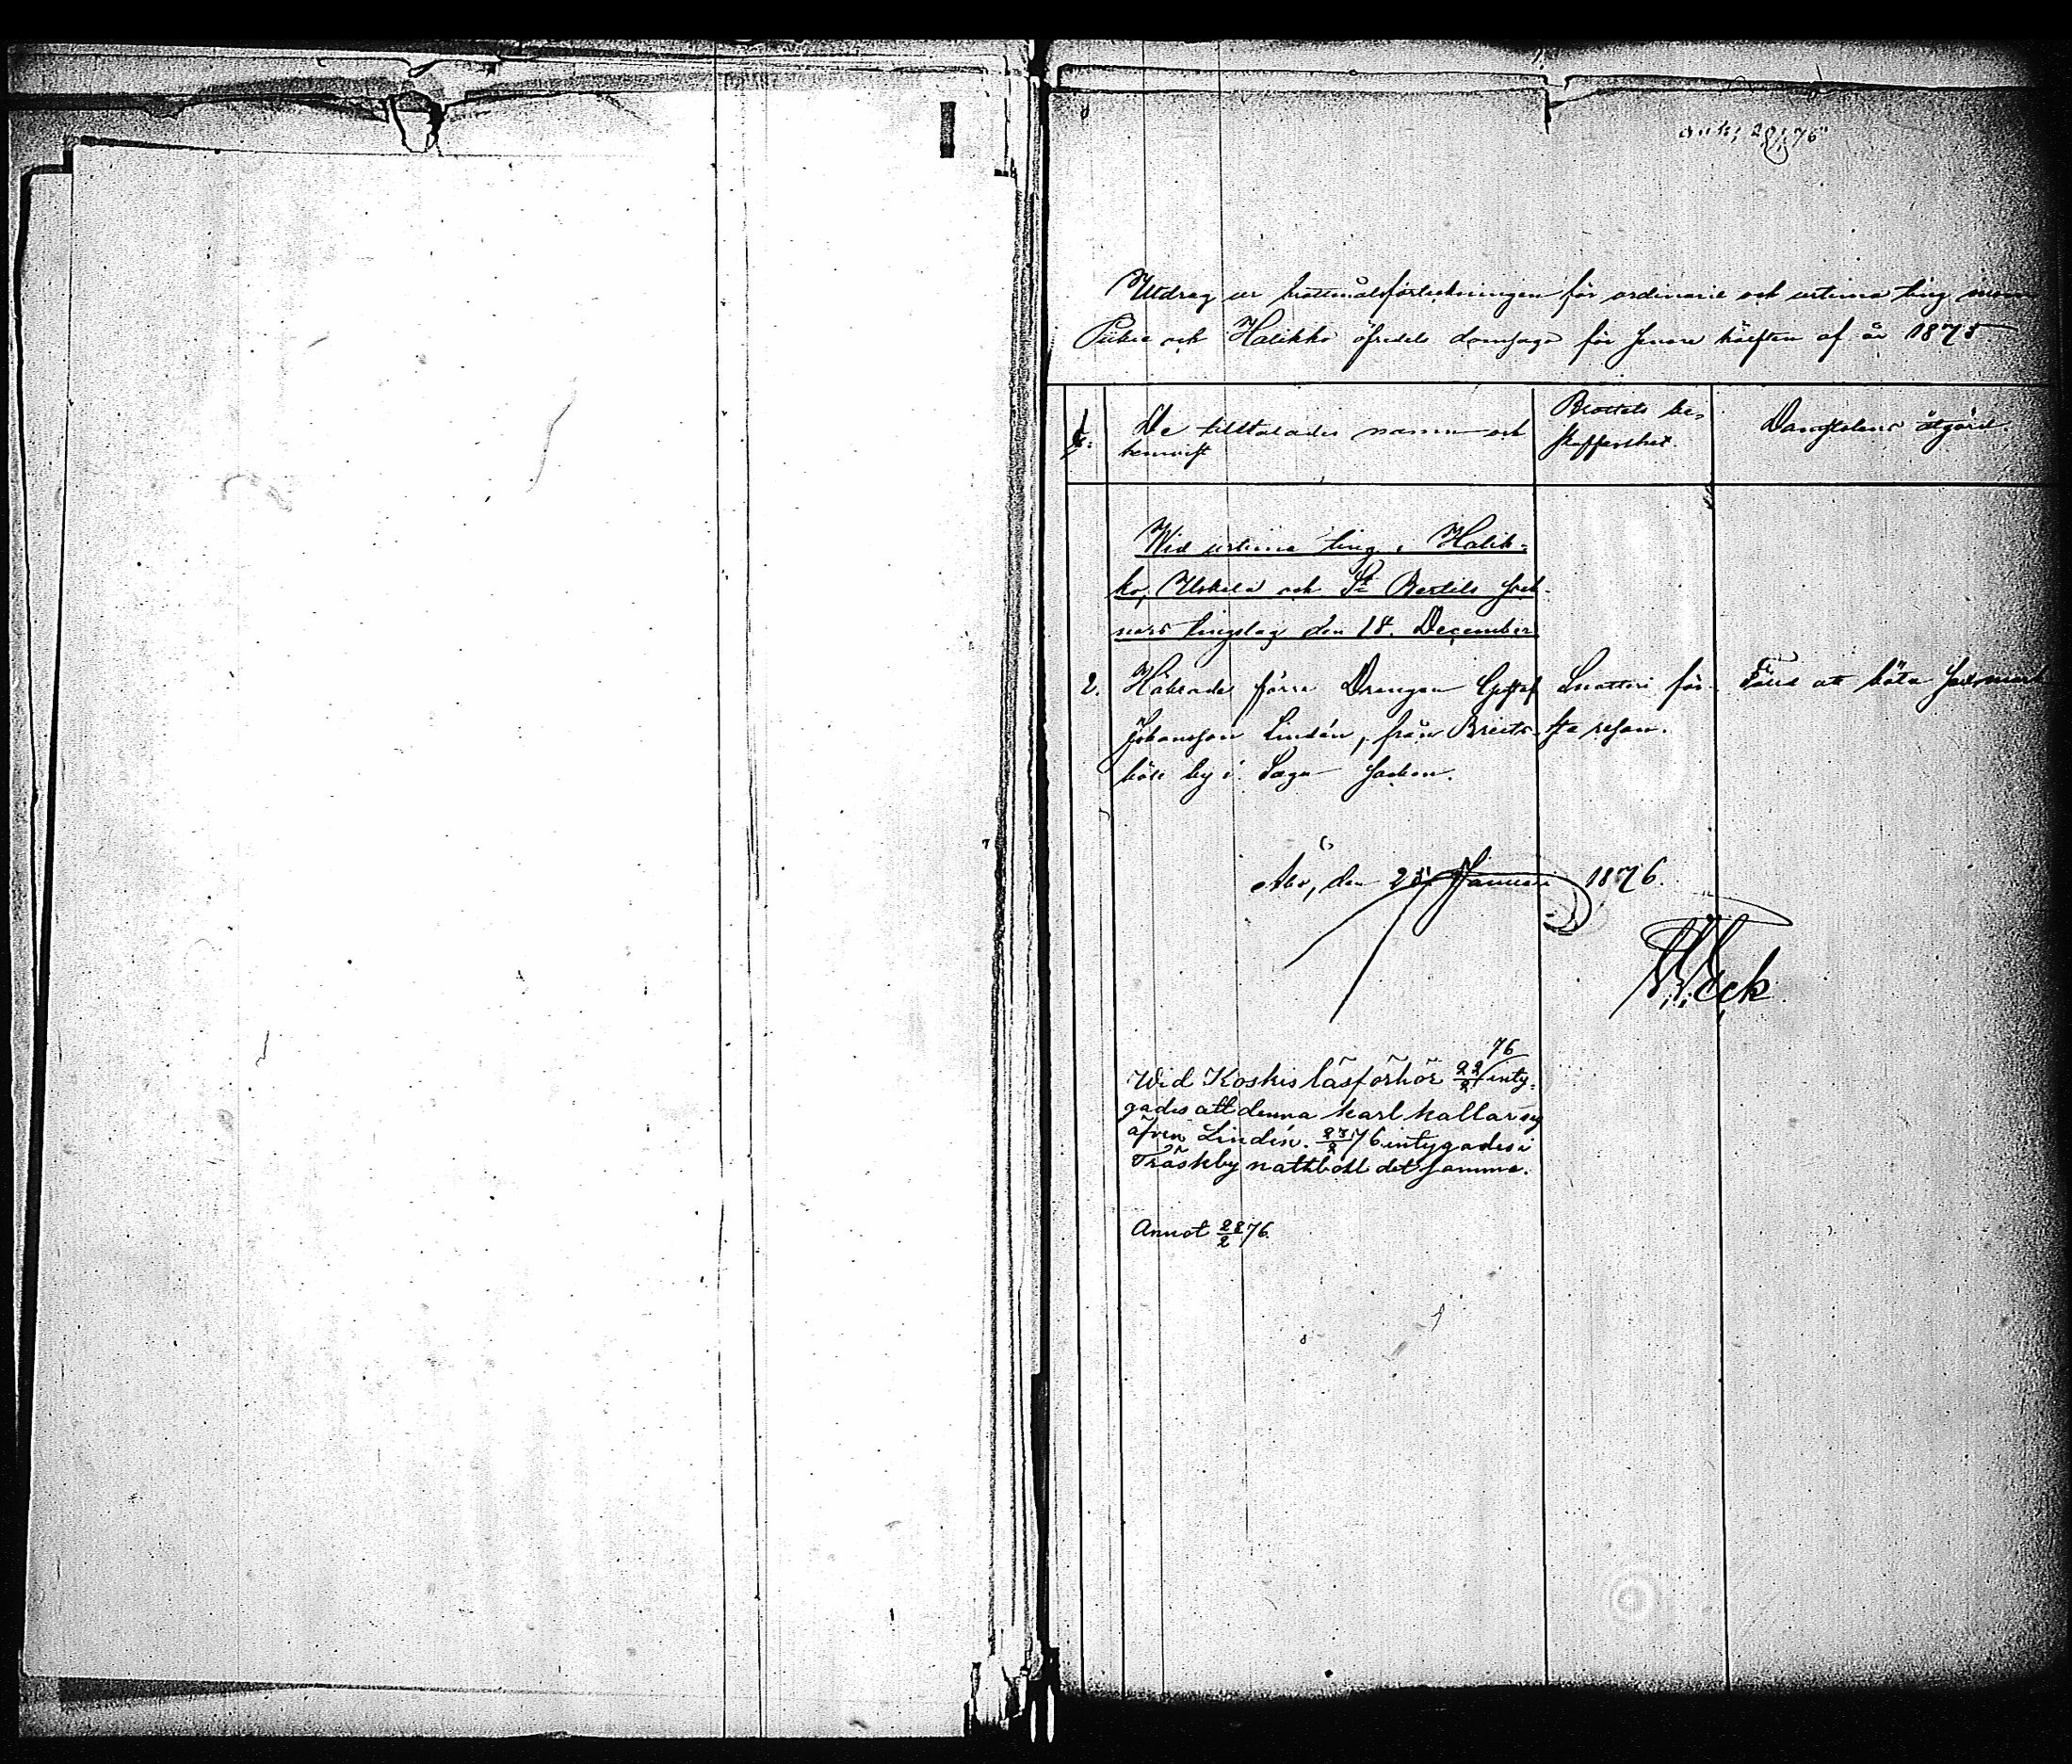 ank. 29/1 76
Utdrag ur brottmålsförteckningen för ordinarie och urtima ting inom
Pikie och Halikko öfredels domsaga för senare hälften af år 1875.
№:
De tilltalades namn och
hemvist
Brottets be-
skaffenhet.
Domstolens åtgärd.
Wid urtima ting i Halik-
ko, Uskela och St Bertils sock-
nars tingslag den 18. December
2. Häktade förre Drengen Gustaf
Johansson Lindén, från Breits-
böle by i Sagu socken.
Snatteri för-
sta resan.
Fäld att böta sex mark
Åbo, den 25 Januari 1876.
Wid Koskis läsförhör 22/2 76 inty-
gades att denna karl kallar sig
äfven Lindén. 23/2 76 intygades i
Träskby nattböll det samma.
Annot 28/2 76.